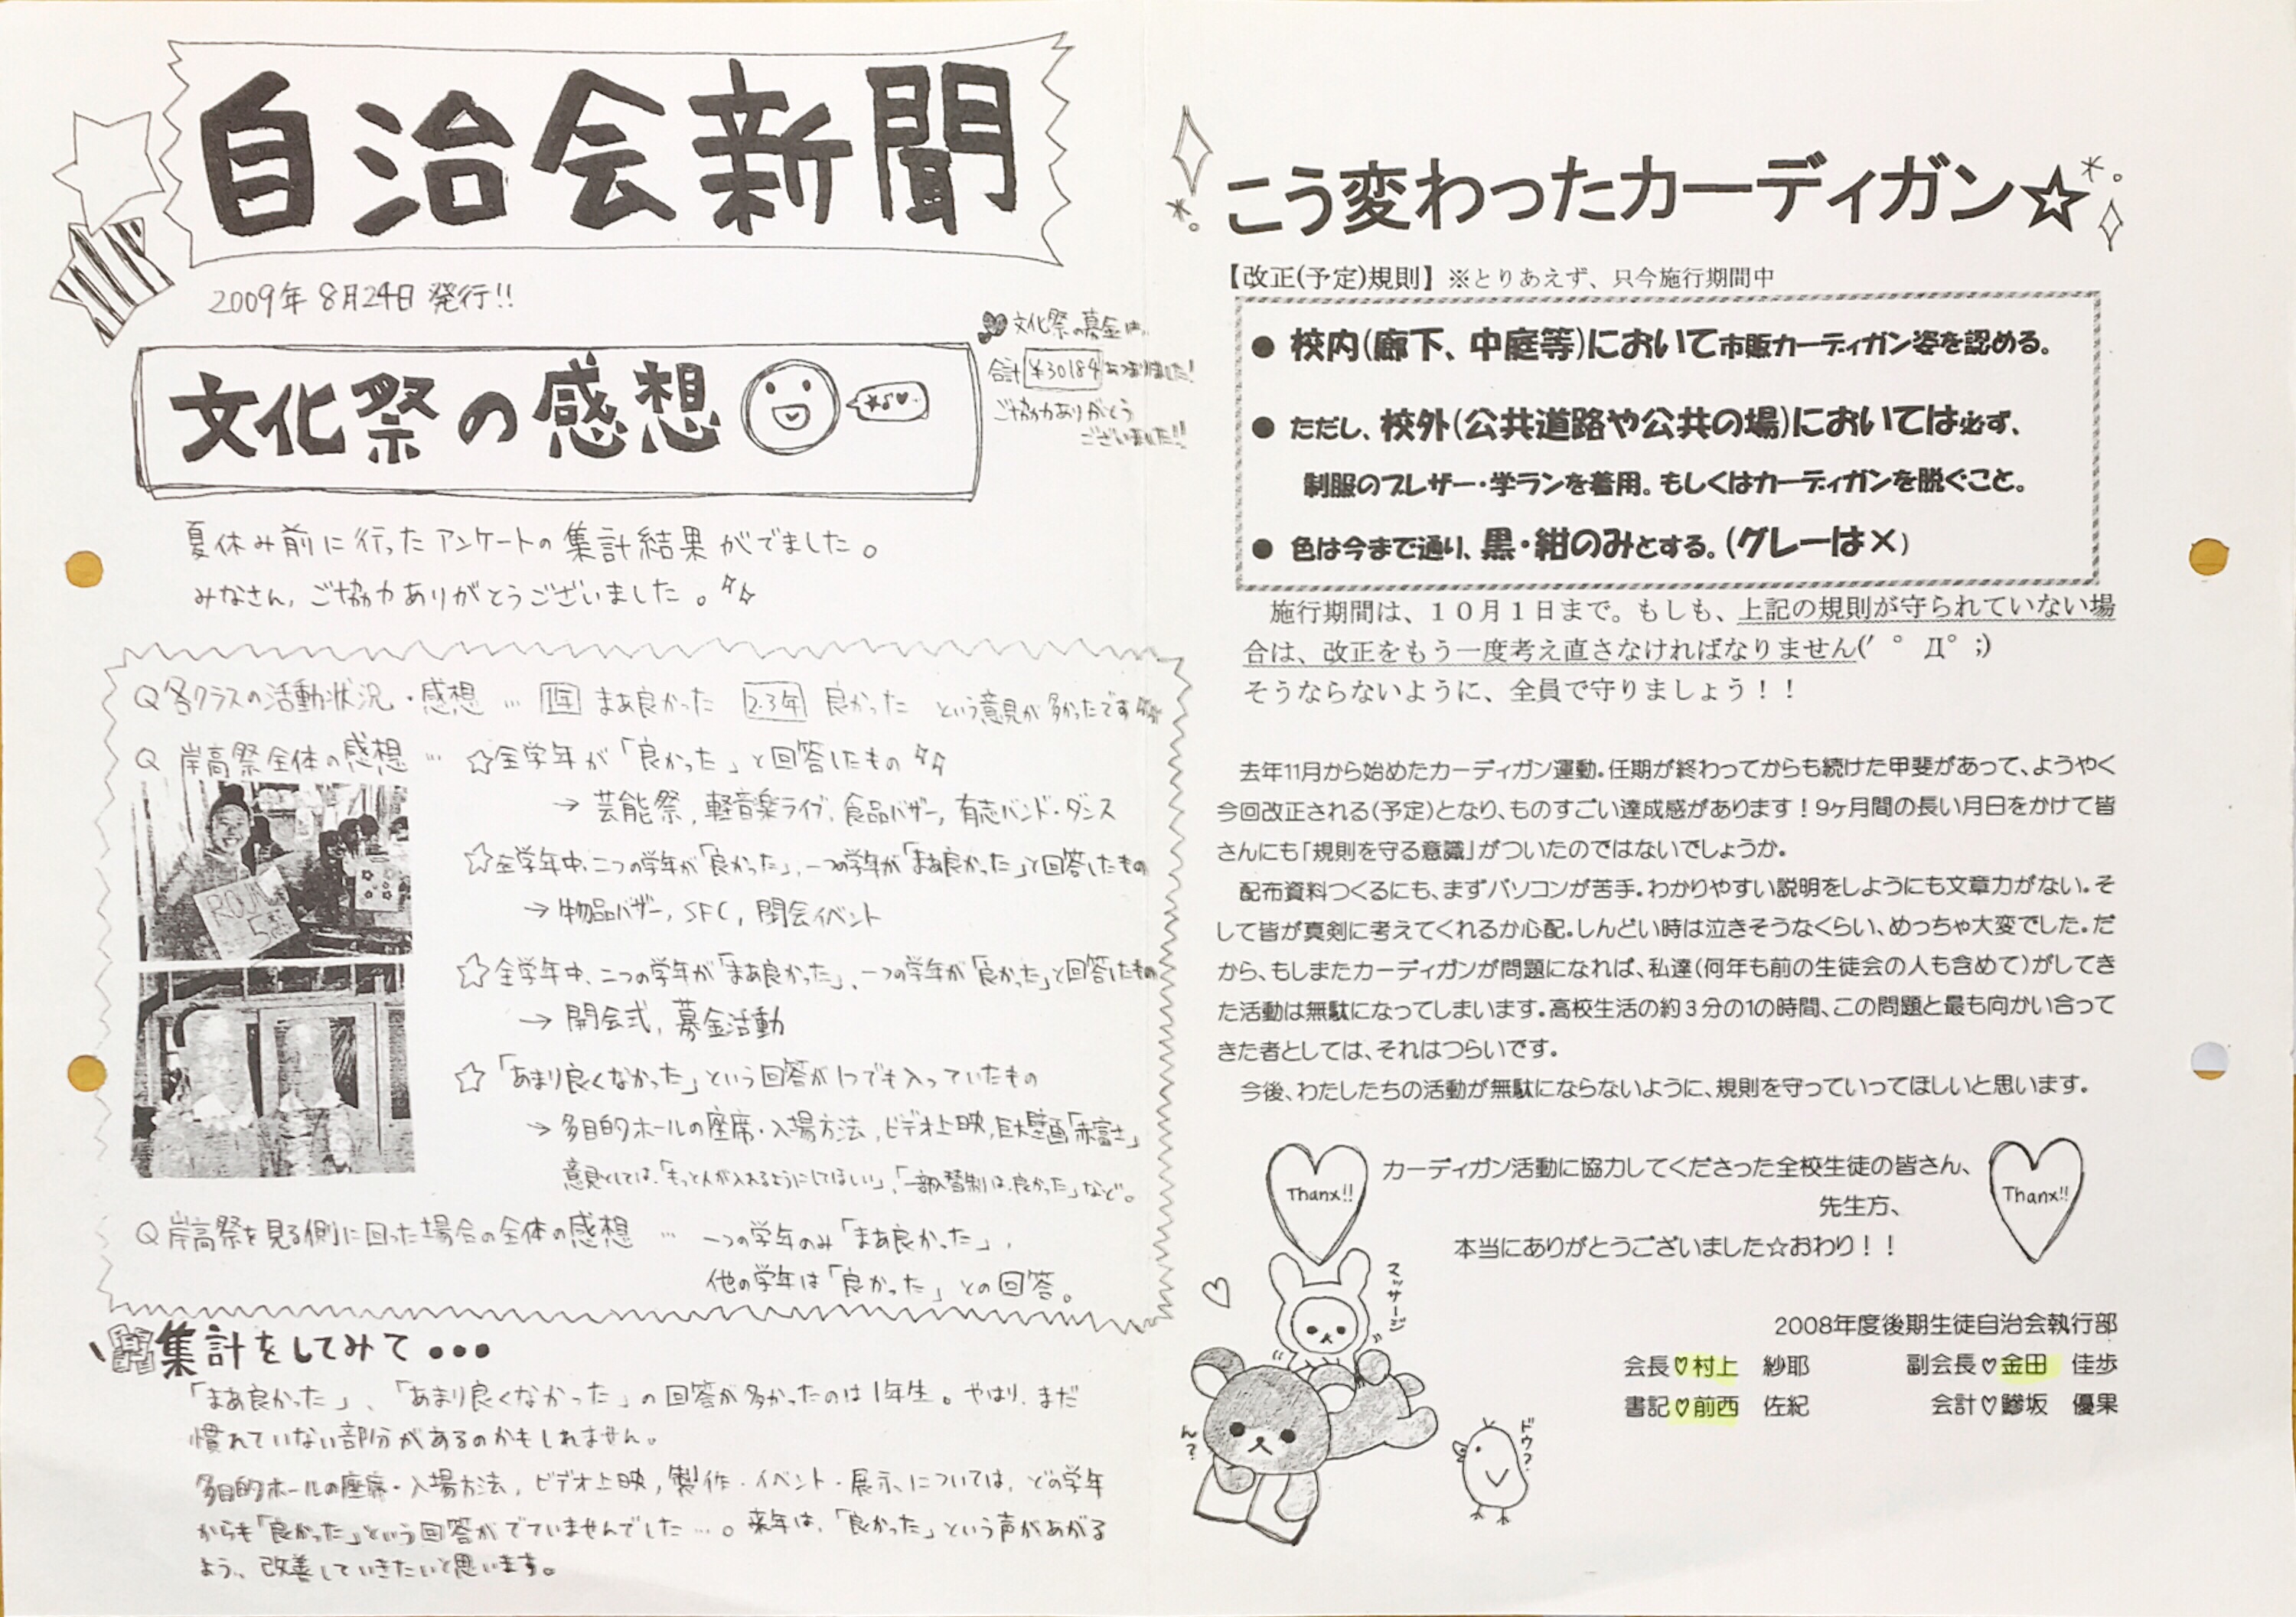 自治会新聞
2009年 8月24日 発行!!
文化祭の感想
♥文化祭の募金は、
合計 ¥30184 あつまりました!
ご協力ありがとう
ございました!!
夏休み前に行ったアンケートの集計結果がでました。
みなさん、ご協力ありがとうございました。
Q 各クラスの活動状況・感想 … 1年 まあ良かった 2.3年 良かった という意見が多かったです
Q 岸高祭全体の感想 … ☆全学年が「良かった」と回答したもの
→ 芸能祭, 軽音楽ライブ, 食品バザー, 有志バンド・ダンス
☆全学年中、二つの学年が「良かった」、一つの学年が「まあ良かった」と回答したもの
→ 物品バザー, SFC, 閉会イベント
☆全学年中、二つの学年が「まあ良かった」、一つの学年が「良かった」と回答したもの
→ 開会式, 募金活動
☆「あまり良くなかった」という回答が1つでも入っていたもの
→ 多目的ホールの座席・入場方法, ビデオ上映, 巨大壁画「赤富士」
意見としては、「もっと人が入れるようにしてほしい」、「一部入替制は、良かった」など。
Q 岸高祭を見る側に回った場合の全体の感想 … 一つの学年のみ「まあ良かった」、
他の学年は「良かった」との回答。
集計をしてみて・・・
「まあ良かった」、「あまり良くなかった」の回答が多かったのは1年生。やはり、まだ
慣れていない部分があるのかもしれません。
多目的ホールの座席・入場方法, ビデオ上映, 製作・イベント・展示、については、どの学年
からも「良かった」という回答がでていませんでした…。来年は、「良かった」という声があがる
よう、改善していきたいと思います。
こう変わったカーディガン☆
【改正(予定)規則】※とりあえず、只今施行期間中
● 校内(廊下、中庭等)において市販カーディガン姿を認める。
● ただし、校外(公共道路や公共の場)においては必ず、
制服のブレザー・学ランを着用。もしくはカーディガンを脱ぐこと。
● 色は今まで通り、黒・紺のみとする。(グレーは×)
施行期間は、１０月１日まで。もしも、上記の規則が守られていない場
合は、改正をもう一度考え直さなければなりません(′゜Д゜;)
そうならないように、全員で守りましょう！！
去年11月から始めたカーディガン運動。任期が終わってからも続けた甲斐があって、ようやく
今回改正される(予定)となり、ものすごい達成感があります！9ヶ月間の長い月日をかけて皆
さんにも「規則を守る意識」がついたのではないでしょうか。
配布資料つくるにも、まずパソコンが苦手。わかりやすい説明をしようにも文章力がない。そ
して皆が真剣に考えてくれるか心配。しんどい時は泣きそうなくらい、めっちゃ大変でした。だ
から、もしまたカーディガンが問題になれば、私達(何年も前の生徒会の人も含めて)がしてき
た活動は無駄になってしまいます。高校生活の約３分の1の時間、この問題と最も向かい合って
きた者としては、それはつらいです。
今後、わたしたちの活動が無駄にならないように、規則を守っていってほしいと思います。
Thanx!!
カーディガン活動に協力してくださった全校生徒の皆さん、
先生方、
本当にありがとうございました☆おわり！！
Thanx!!
マッサージ
ん？
ドウ？
2008年度後期生徒自治会執行部
会長♡村上 紗耶 副会長♡金田 佳歩
書記♡前西 佐紀 会計♡鯵坂 優果